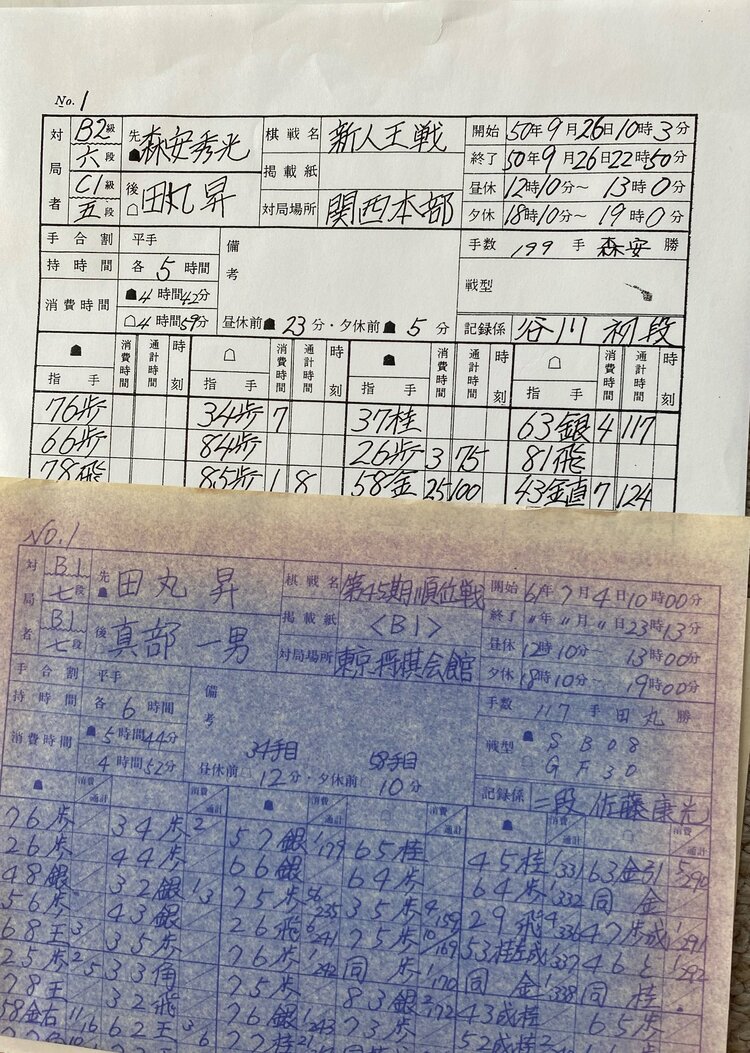 No. 1
対局者 B2級 六段 先 森安秀光 棋戦名 新人王戦 開始 50年9月26日10時3分
C1級 五段 後 田丸昇 掲載紙 終了 50年9月26日22時50分
対局場所 関西本部 昼休 12時10分～13時0分
夕休 18時10分～19時0分
手合割 平手 備考 手数 199手 森安 勝
持時間 各5時間 戦型
消費時間 4時間42分
4時間59分 昼休前 23分・夕休前 5分 記録係 谷川 初段
指手 消費時間 通計時間 時刻 指手 消費時間 通計時間 時刻 指手 消費時間 通計時間 時刻 指手 消費時間 通計時間 時刻
76歩 34歩 7 37桂 63銀 4 117
66歩 84歩 26歩 3 75 81飛
78飛 85歩 1 8 58金 25 100 43金直 7 124
No.1
対局者 B1級 七段 先 田丸昇 棋戦名 第45期順位戦 開始 61年7月4日10時00分
B1級 七段 後 真部一男 掲載紙 <B1> 終了 〃年〃月〃日23時13分
対局場所 東京将棋会館 昼休 12時10分～13時00分
夕休 18時10分～19時00分
手合割 平手 備考 手数 117手 田丸 勝
持時間 各6時間 戦型 SB08
消費時間 5時間44分 GF30
4時間52分 34手目 58手目
昼休前 12分・夕休前 10分 記録係 二段 佐藤康光
消費 通計 消費 通計 消費 通計 消費 通計 消費 通計 消費 通計
76歩 34歩 2 57銀 1/179 65桂 45桂 1/331 63金引 5/290
26歩 44歩 66銀 64歩 64歩 1/332 同金
48銀 32銀 1 3 75歩 56/235 35歩 4/159 29飛 4/336 47歩成 1/291
56歩 43銀 26飛 6/241 75歩 10/169 53桂左成 1/337 46と 1/292
68王 3 35歩 76歩 1/242 同歩 1/170 同金 1/338 同桂
25歩 2 5 33角 75歩 83銀 2/172 43成桂 65歩
78王 32飛 76銀 1/243 73歩 52成桂
58金右 11/16 62王 3 6 77桂